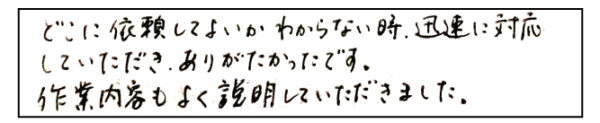 どこに依頼してよいかわからない時、迅速に対応
していただき、ありがたかったです。
作業内容もよく説明していただきました。